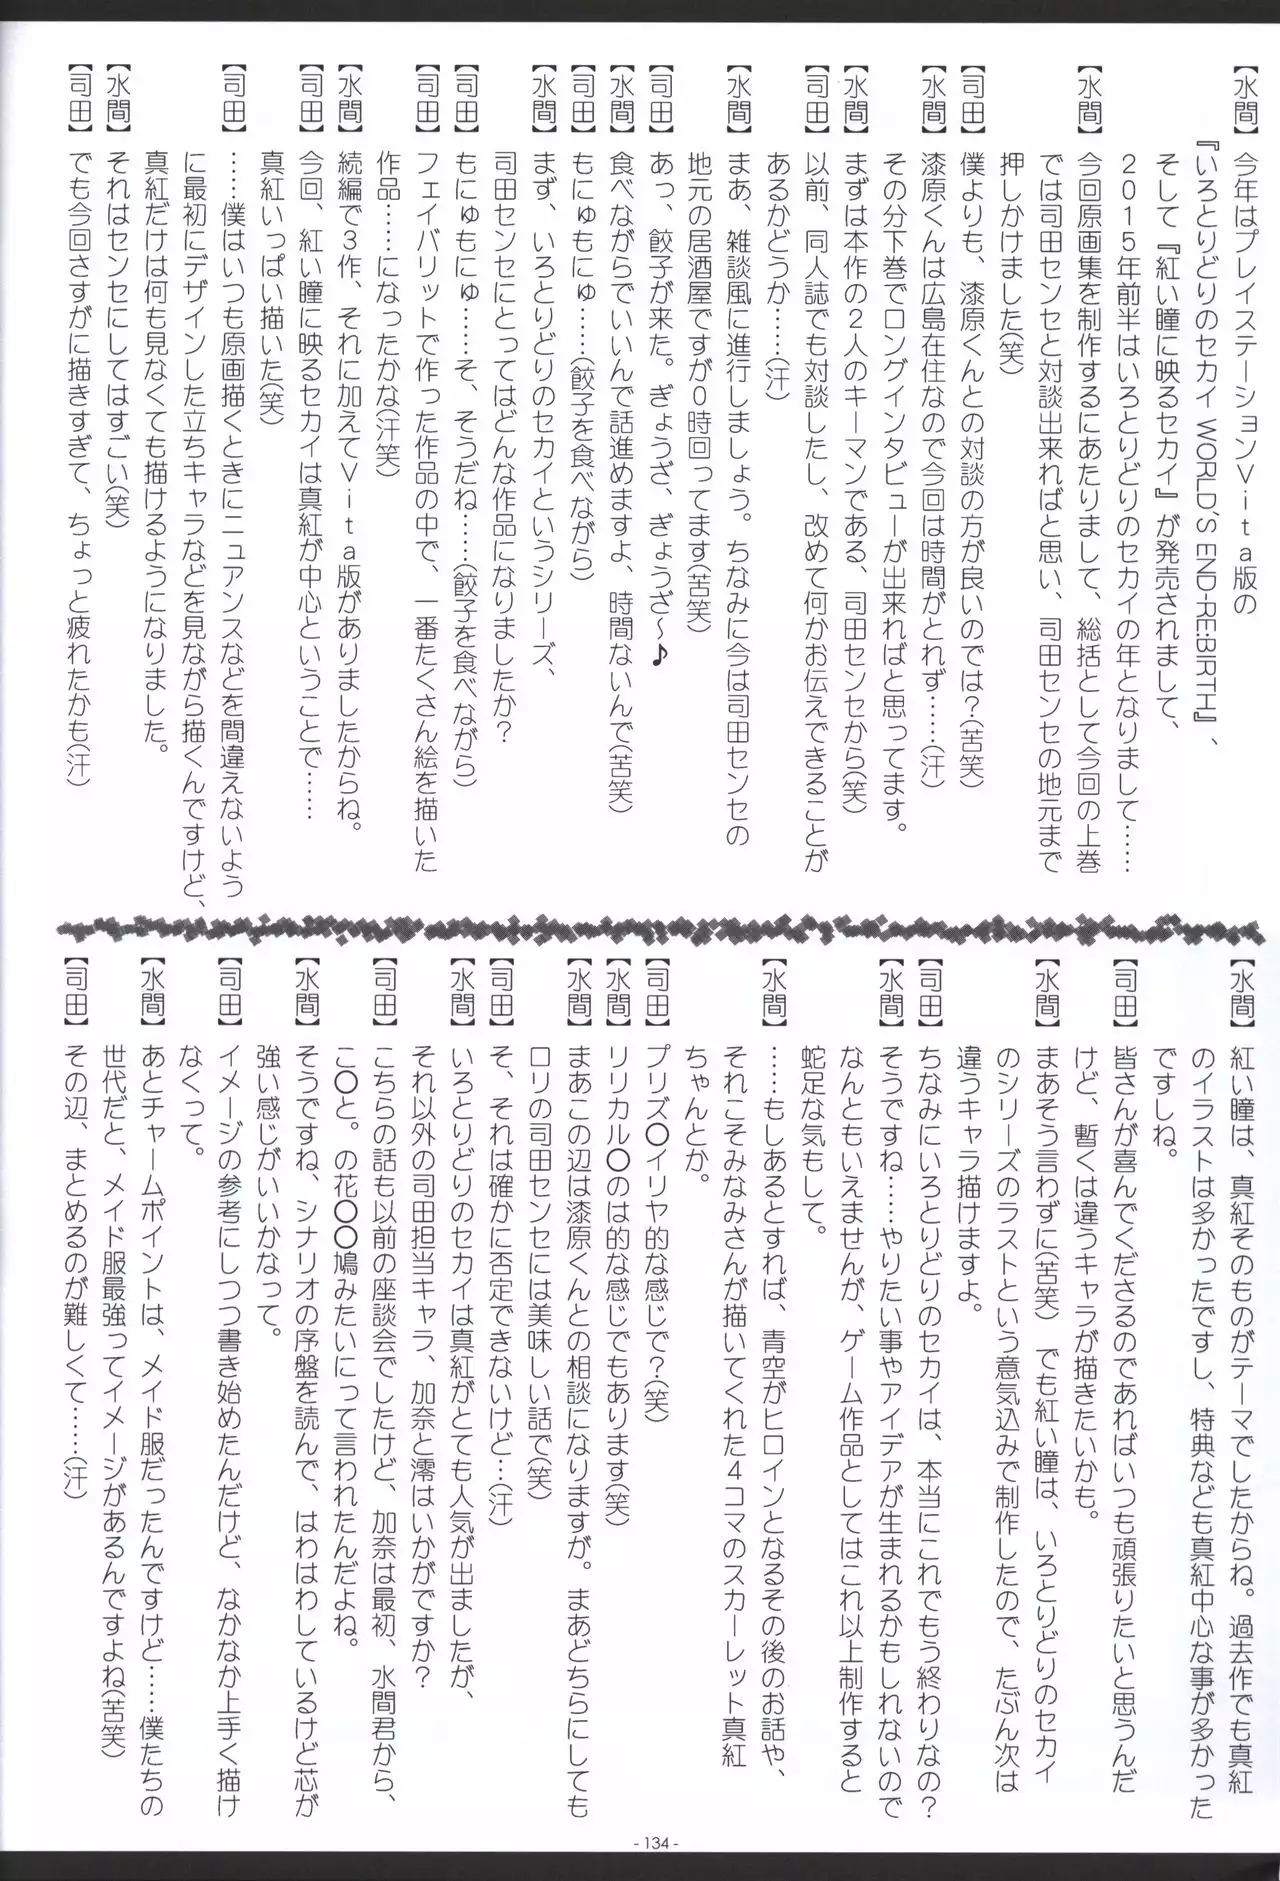 【水間】今年はプレイステーションVita版の
『いろとりどりのセカイ WORLD'S END-RE:BIRTH』、
そして『紅い瞳に映るセカイ』が発売されまして、
2015年前半はいろとりどりのセカイの年となりまして……
【水間】今回原画集を制作するにあたりまして、総括として今回の上巻
では司田センセと対談出来ればと思い、司田センセの地元まで
押しかけました(笑)
【司田】僕よりも、漆原くんとの対談の方が良いのでは？(苦笑)
【水間】漆原くんは広島在住なので今回は時間がとれず……(汗)
その分下巻でロングインタビューが出来ればと思ってます。
【水間】まずは本作の2人のキーマンである、司田センセから(笑)
【司田】以前、同人誌でも対談したし、改めて何かお伝えできることが
あるかどうか……(汗)
【水間】まあ、雑談風に進行しましょう。ちなみに今は司田センセの
地元の居酒屋ですが0時回ってます(苦笑)
【司田】あっ、餃子が来た。ぎょうざ、ぎょうざ～♪
【水間】食べながらでいいんで話進めますよ、時間ないんで(苦笑)
【司田】もにゅもにゅ……(餃子を食べながら)
【水間】まず、いろとりどりのセカイというシリーズ、
司田センセにとってはどんな作品になりましたか？
【司田】もにゅもにゅ……そ、そうだね……(餃子を食べながら)
【司田】フェイバリットで作った作品の中で、一番たくさん絵を描いた
作品……になったかな(汗笑)
【水間】続編で3作、それに加えてVita版がありましたからね。
【司田】今回、紅い瞳に映るセカイは真紅が中心ということで……
真紅いっぱい描いた(笑)
【司田】……僕はいつも原画描くときにニュアンスなどを間違えないよう
に最初にデザインした立ちキャラなどを見ながら描くんですけど、
真紅だけは何も見なくても描けるようになりました。
【水間】それはセンセにしてはすごい(笑)
【司田】でも今回さすがに描きすぎて、ちょっと疲れたかも(汗)
【水間】紅い瞳は、真紅そのものがテーマでしたからね。過去作でも真紅
のイラストは多かったですし、特典なども真紅中心な事が多かった
ですしね。
【司田】皆さんが喜んでくださるのであればいつも頑張りたいと思うんだ
けど、暫くは違うキャラが描きたいかも。
【水間】まあそう言わずに(苦笑) でも紅い瞳は、いろとりどりのセカイ
のシリーズのラストという意気込みで制作したので、たぶん次は
違うキャラ描けますよ。
【司田】ちなみにいろとりどりのセカイは、本当にこれでもう終わりなの？
【水間】そうですね……やりたい事やアイデアが生まれるかもしれないので
なんともいえませんが、ゲーム作品としてはこれ以上制作すると
蛇足な気もして。
【水間】……もしあるとすれば、青空がヒロインとなるその後のお話や、
それこそみなみさんが描いてくれた4コマのスカーレット真紅
ちゃんとか。
【司田】プリズ〇イリヤ的な感じで？(笑)
【水間】リリカル〇のは的な感じでもあります(笑)
【水間】まあこの辺は漆原くんとの相談になりますが。まあどちらにしても
ロリの司田センセには美味しい話で(笑)
【司田】そ、それは確かに否定できないけど…(汗)
【水間】いろとりどりのセカイは真紅がとても人気が出ましたが、
それ以外の司田担当キャラ、加奈と澪はいかがですか？
【司田】こちらの話も以前の座談会でしたけど、加奈は最初、水間君から、
こ〇と。の花〇〇鳩みたいにって言われたんだよね。
【水間】そうですね、シナリオの序盤を読んで、はわはわしているけど芯が
強い感じがいいかなって。
【司田】イメージの参考にしつつ書き始めたんだけど、なかなか上手く描け
なくって。
【水間】あとチャームポイントは、メイド服だったんですけど……僕たちの
世代だと、メイド服最強ってイメージがあるんですよね(苦笑)
【司田】その辺、まとめるのが難しくて……(汗)
- 134 -